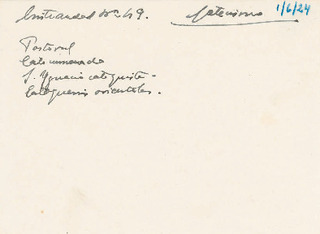 Cristiandad Nº 49. Catecismo 1/6/24
Pastoral
Catecumenado
S. Ygnacio catequista -
Catequesis orientales.